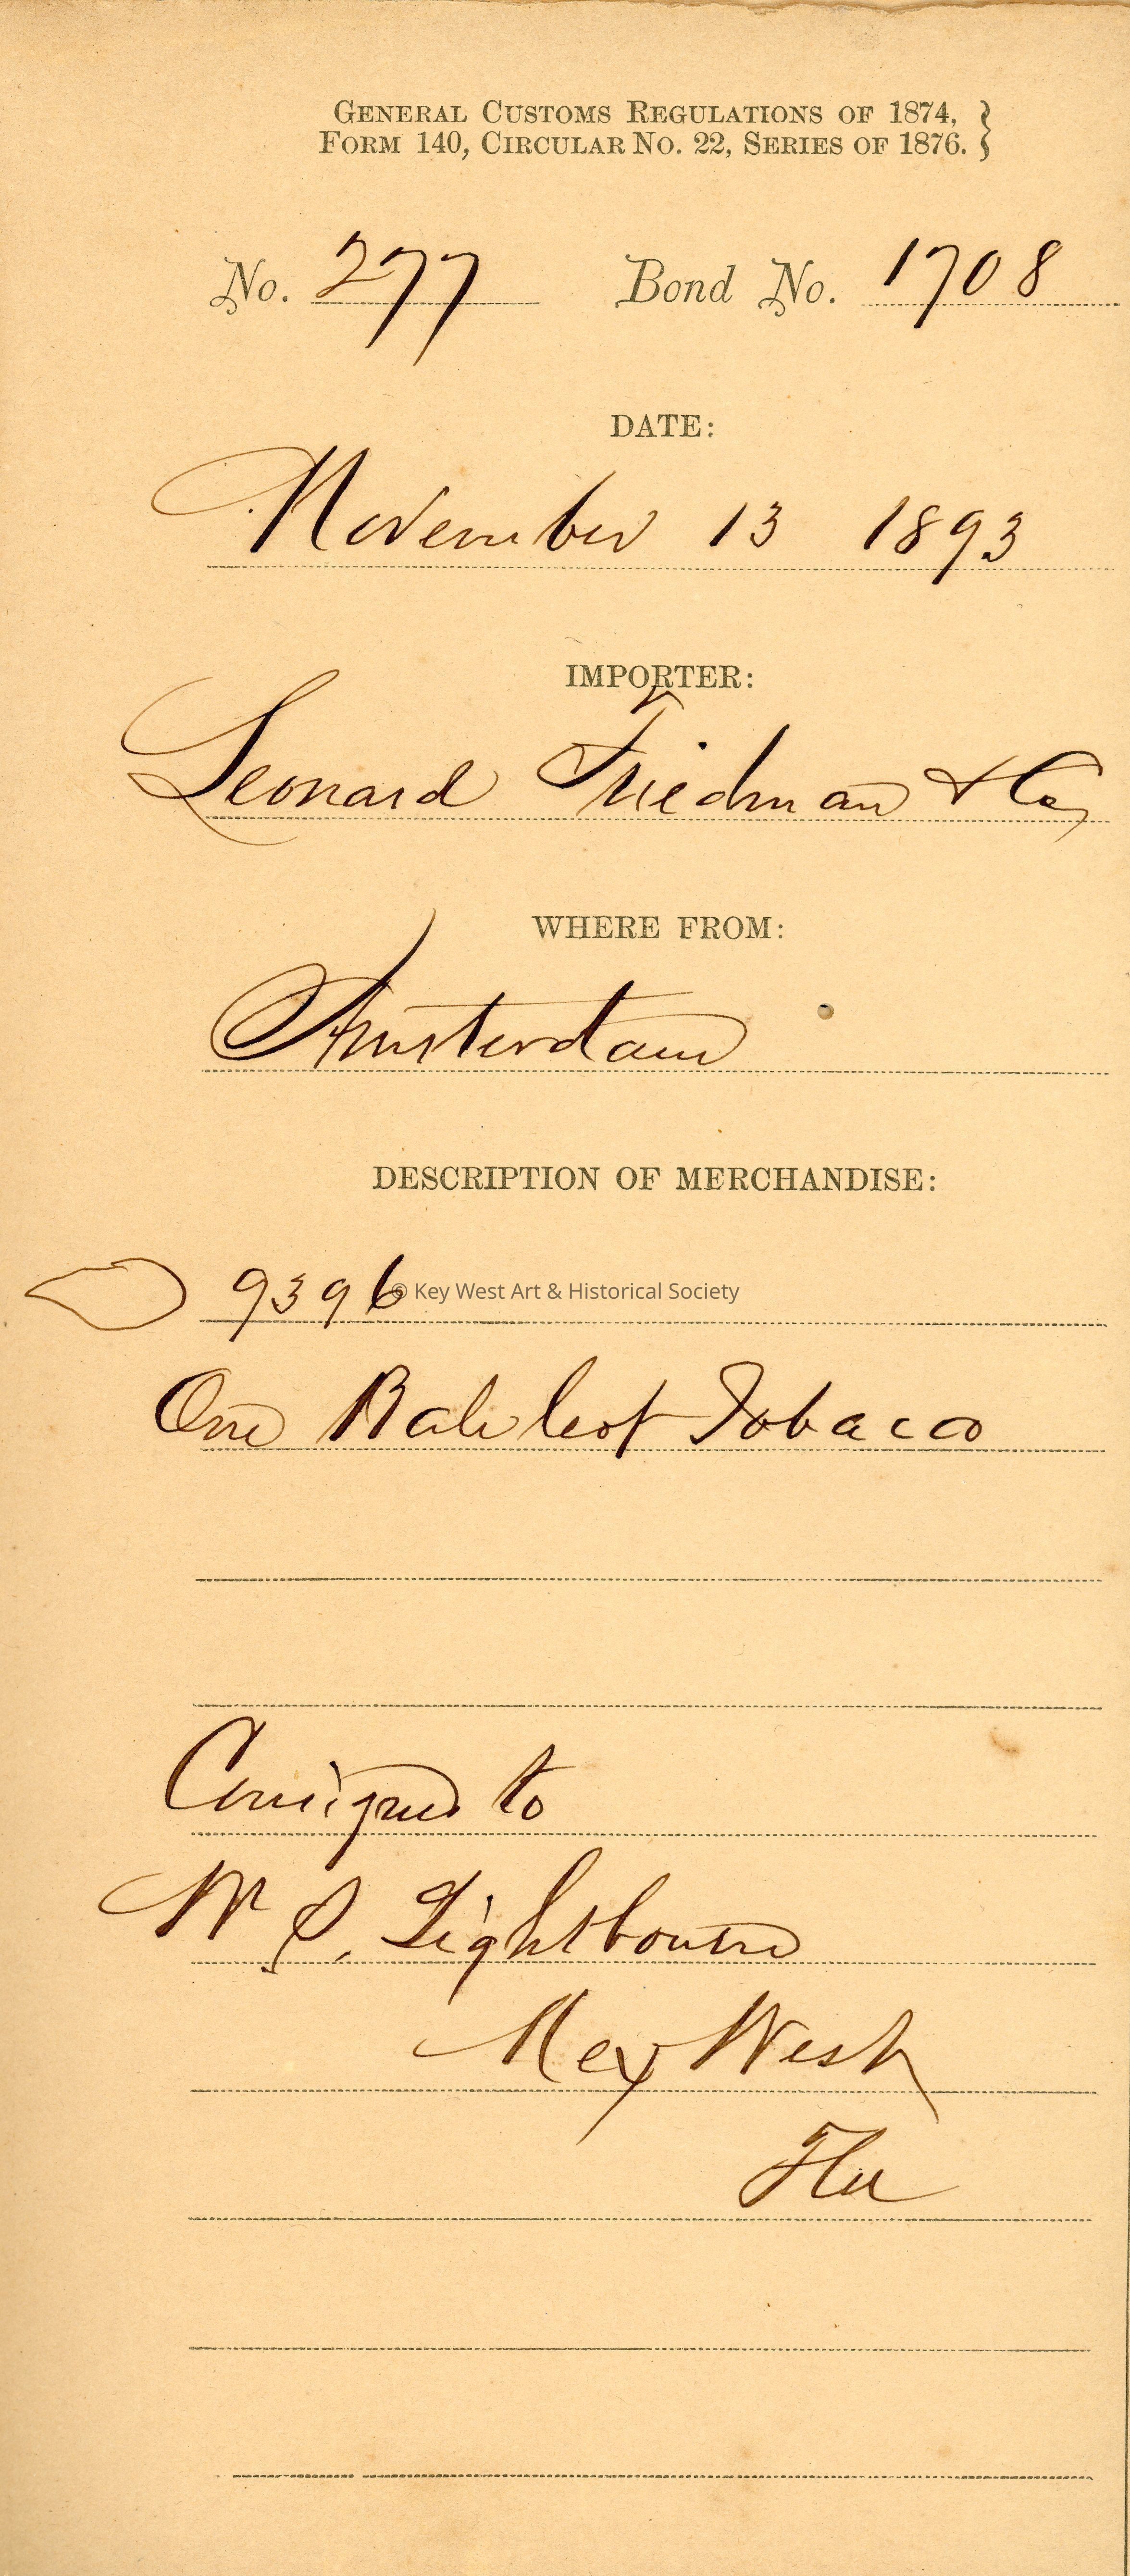 GENERAL CUSTOMS REGULATIONS OF 1874, }
FORM 140, CIRCULAR NO. 22, SERIES OF 1876. }
No. 277 Bond No. 1708
DATE:
November 13 1893
IMPORTER:
Leonard Friedman & Co
WHERE FROM:
Amsterdam
DESCRIPTION OF MERCHANDISE:
9396
© Key West Art & Historical Society
One Bale leaf Tobacco
Consigned to
W S. Lightbourne
Key West
Fla